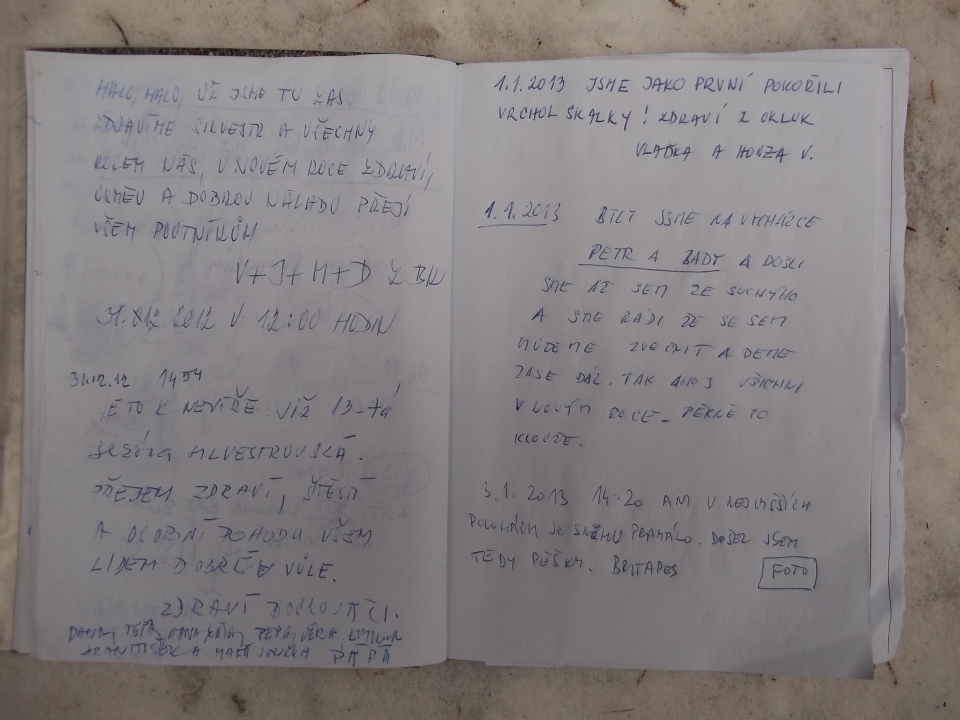 HALO, HALO, UŽ JSME TU ZAS.
ZDRAVÍME SILVESTR A VŠECHNY
KOLEM NÁS, V NOVÉM ROCE ZDRAVÍ,
ÚSMĚV A DOBROU NÁLADU PŘEJÍ
VŠEM POUTNÍKŮM
V+J+M+D Z BK
31.12.2012 V 12:00 HODIN
31.12.12 1454
JE TO K NEVÍŘE JIŽ 13-tá
SILVESTROVSKÁ.
PŘEJEM ZDRAVÍ, ŠTĚSTÍ
A OSOBNÍ POHODU VŠEM
LIDEM DOBRÉ VŮLE.
ZDRAVÍ
DANA, HANA PEPA, VĚRA
FRANTIŠEK A PÁ PÁ
1.1.2013 JSME JAKO PRVNÍ POKOŘILI
VRCHOL SKALKY! ZDRAVÍ Z OKLUK
VLAĎKA A HONZA V.
1.1.2013 BYLY JSME NA VYCHÁZCE
PETR A BADY A DOŠLI
SME AŽ SEM ZE SUCHÝHO
A SME RÁDI ŽE SE SEM
MŮŽEME ZVEČNIT A DEME
ZASE DÁL. TAK AHOJ VŠICHNI
V NOVÝM ROCE. PĚKNĚ TO
KLOUŽE.
3.1.2013 14:20 ANI V NEJVYŠŠÍCH
POLOHÁCH JE SNĚHU PRAMÁLO. DOŠEL JSEM
TEDY PĚŠKY. BRITAPES
FOTO